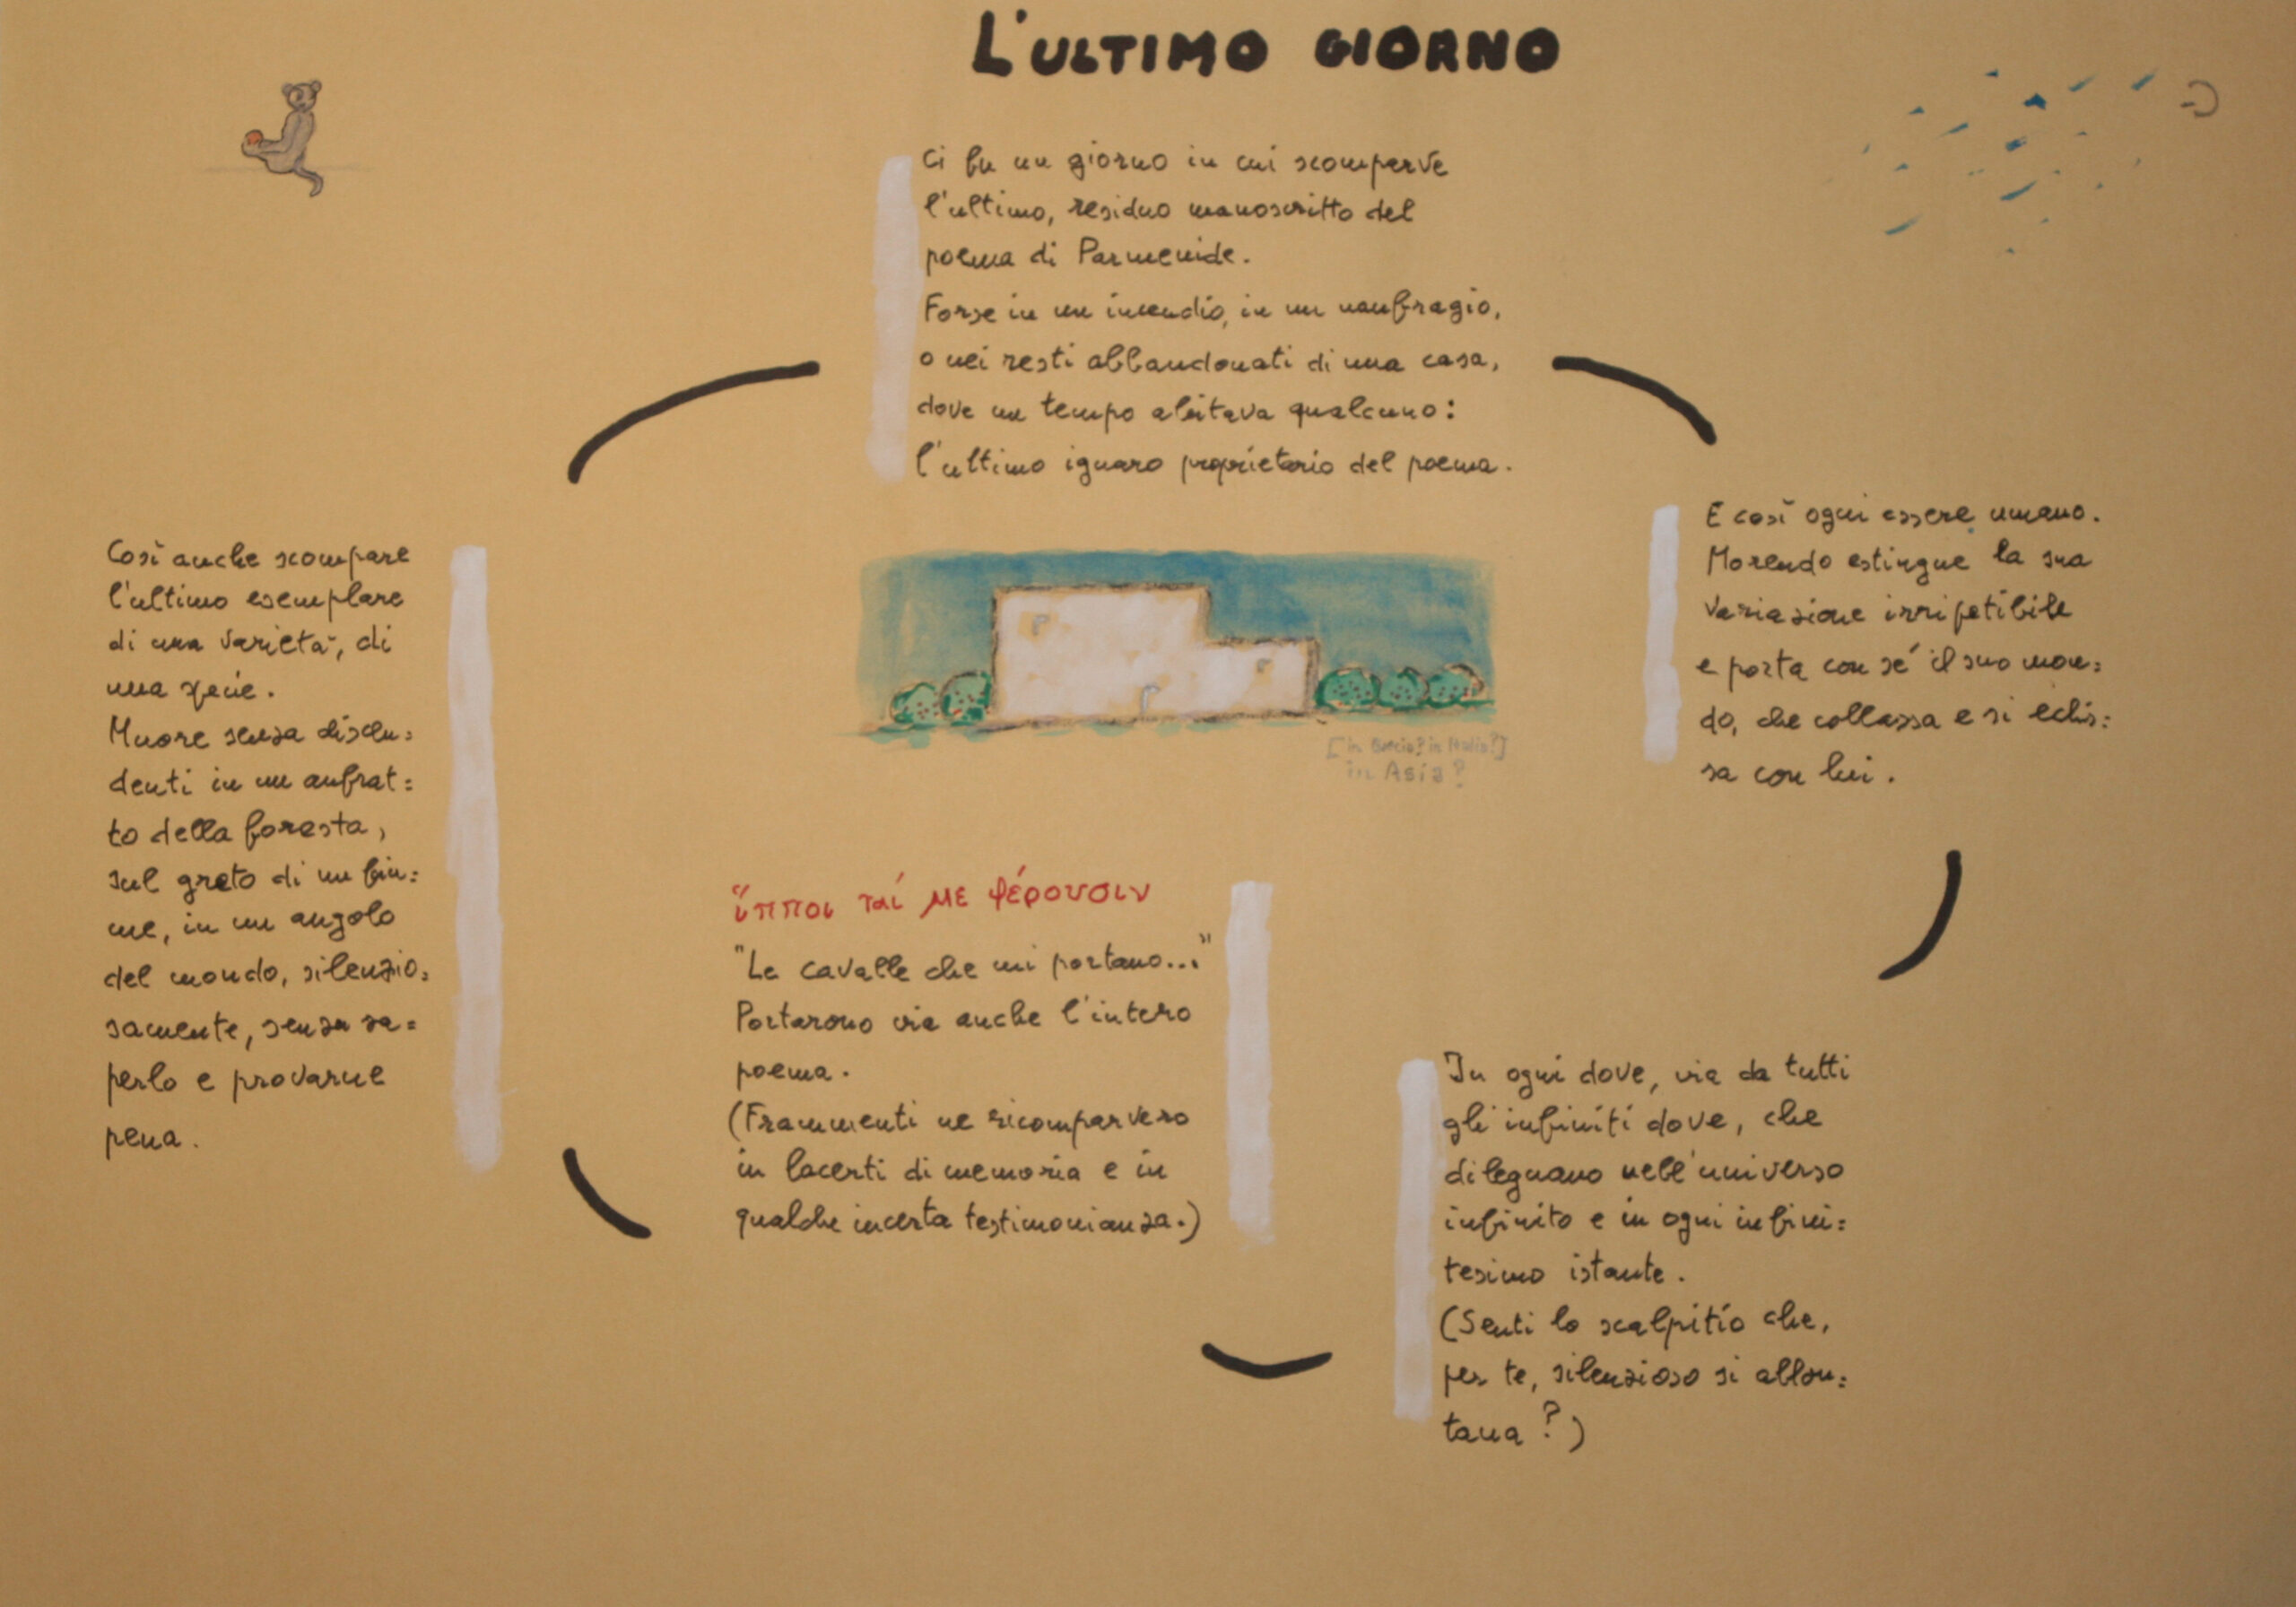 L'ULTIMO GIORNO
Ci fu un giorno in cui scomparve
l'ultimo, residuo manoscritto del
poema di Parmenide.
Forse in un incendio, in un naufragio,
o nei resti abbandonati di una casa,
dove un tempo abitava qualcuno:
l'ultimo ignaro proprietario del poema.
Così anche scompare
l'ultimo esemplare
di una varietà, di
una specie.
Muore senza discen=
denti in un anfrat=
to della foresta,
sul greto di un fiu=
me, in un angolo
del mondo, silenzio=
samente, senza sa=
perlo e provarne
pena.
[in Grecia? in Italia?]
in Asia?
ἵπποι ταί με φέρουσιν
"Le cavalle che mi portano..."
Portarono via anche l'intero
poema.
(Frammenti ne ricomparvero
in lacerti di memoria e in
qualche incerta testimonianza.)
E così ogni essere umano.
Morendo estingue la sua
variazione irripetibile
e porta con sé il suo mon=
do, che collassa e si eclis=
sa con lui.
In ogni dove, via da tutti
gli infiniti dove, che
dileguano nell'universo
infinito e in ogni infini=
tesimo istante.
(Senti lo scalpitío che,
per te, silenzioso si allon=
tana?)